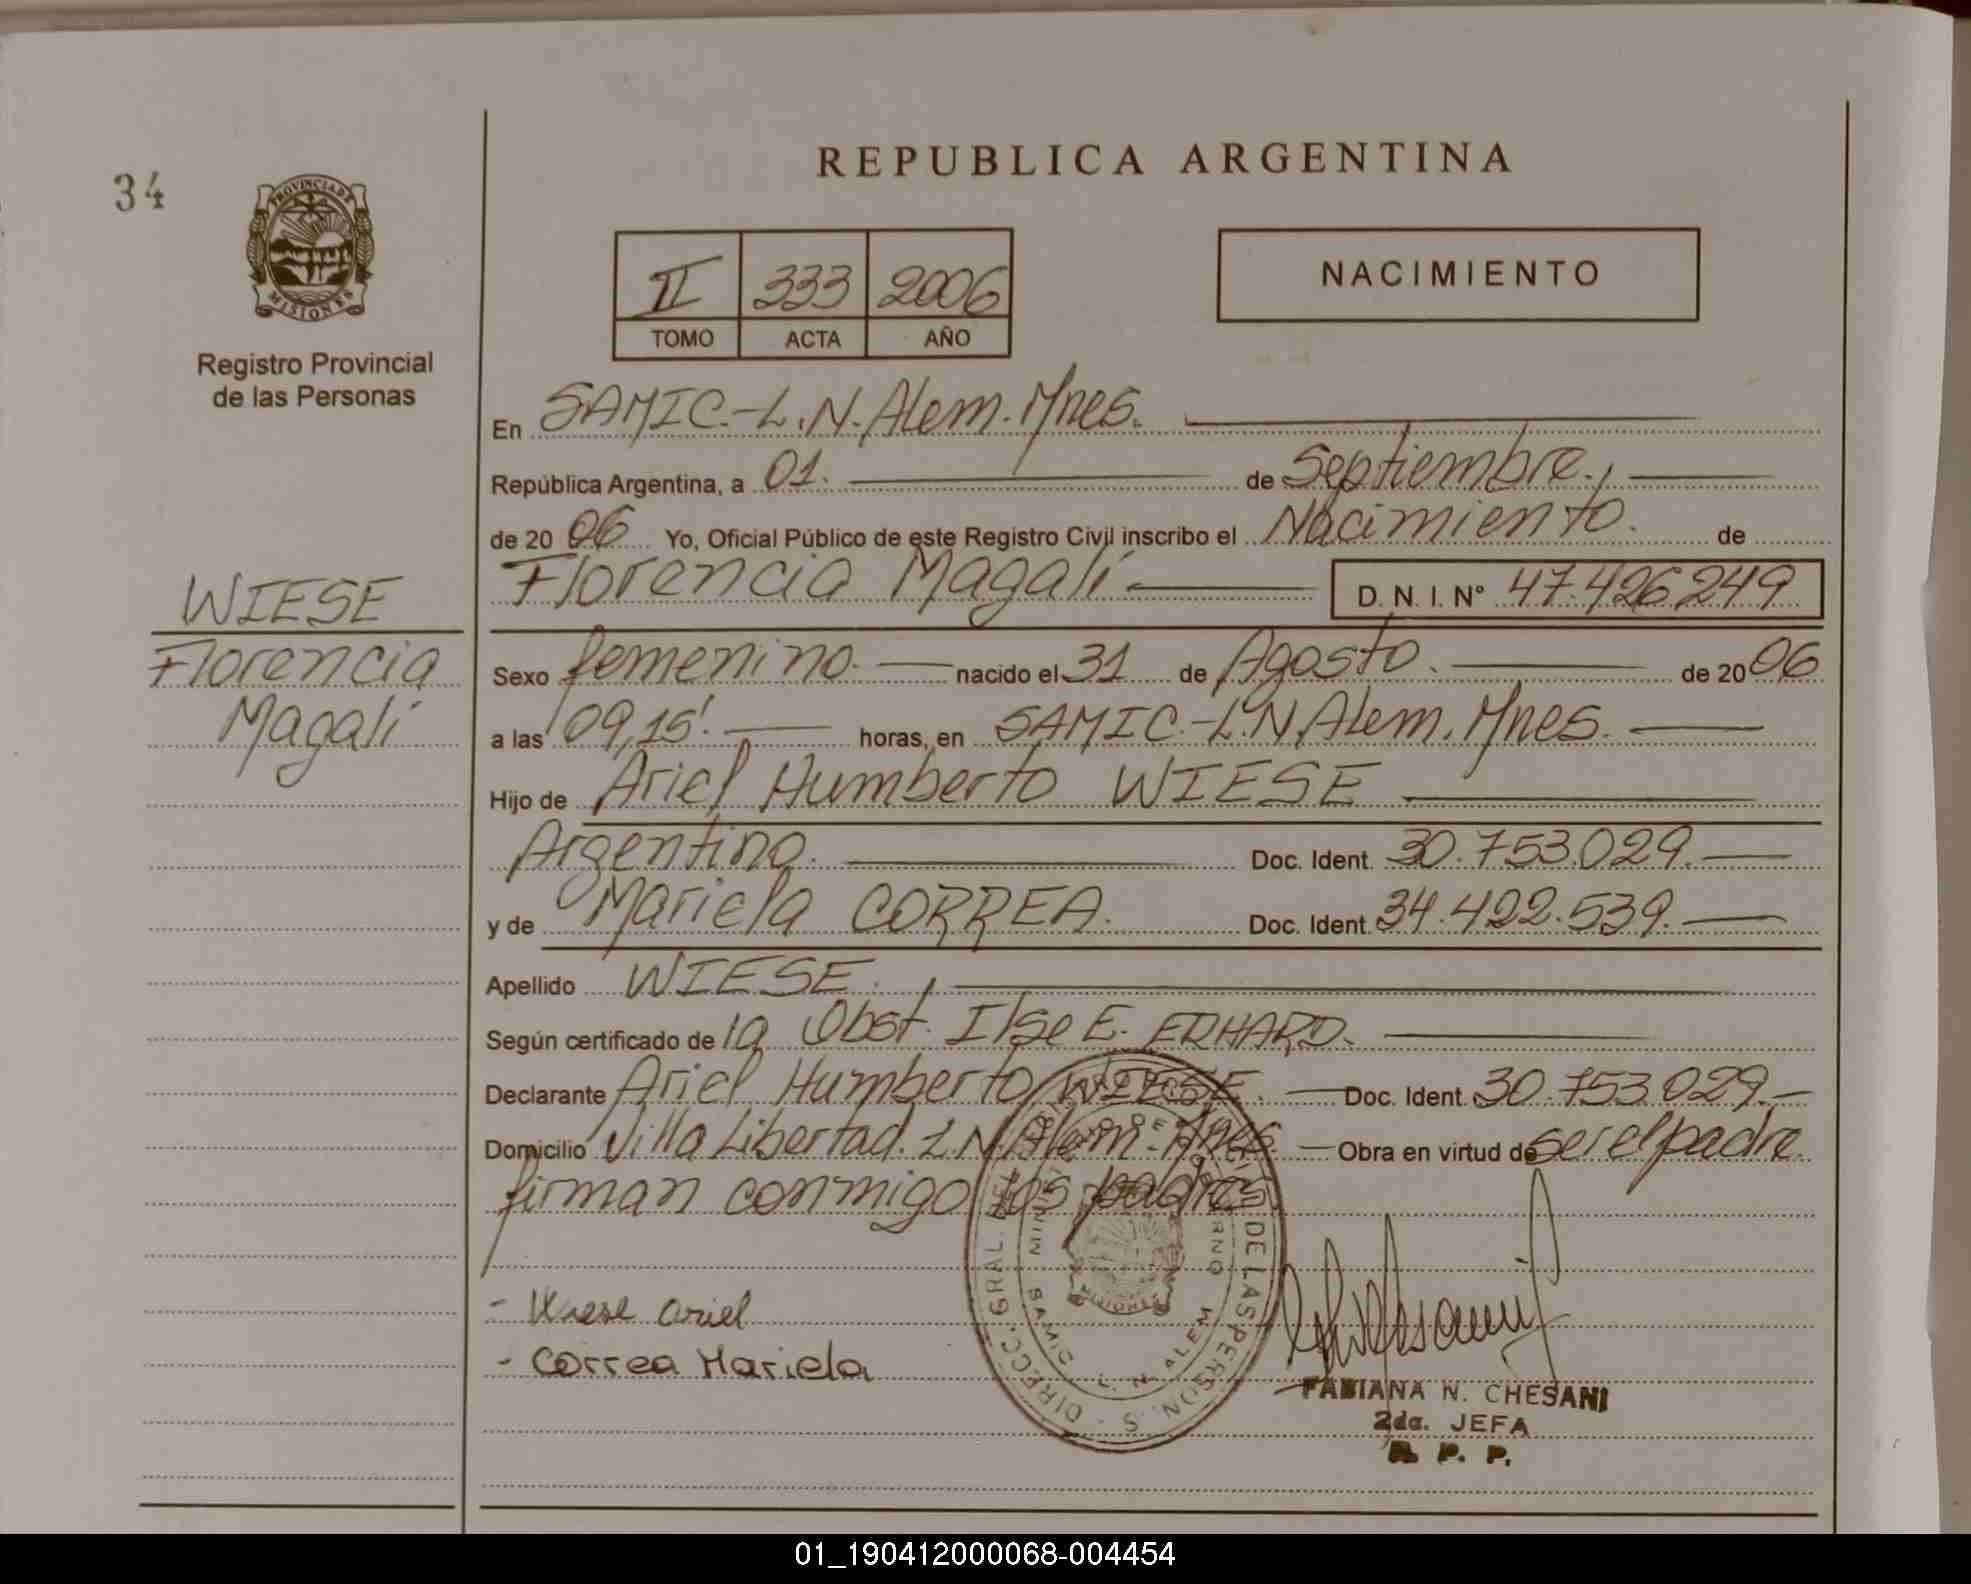 34
PROVINCIA DE
MISIONES
Registro Provincial
de las Personas
WIESE
Florencia
Magalí
REPUBLICA ARGENTINA
II 333 2006
TOMO ACTA AÑO
NACIMIENTO
En SAMIC.-L.N.Alem.Mnes.
República Argentina, a 01. de Septiembre.
de 2006 Yo, Oficial Público de este Registro Civil inscribo el Nacimiento. de
Florencia Magalí D. N. I. N° 47.426249
Sexo femenino. nacido el 31 de Agosto. de 2006
a las 09,15'. horas, en SAMIC.-L.N.Alem.Mnes.
Hijo de Ariel Humberto WIESE
Argentino. Doc. Ident. 30.753.029.
y de Mariela CORREA. Doc. Ident. 34.422.539.
Apellido WIESE.
Según certificado de la Obst. Ilse E. ERHARD.
Declarante Ariel Humberto WIESE. Doc. Ident. 30.753.029.-
Domicilio Villa Libertad. L.N.Alem-Mnes. Obra en virtud de ser el padre.
firman conmigo los padres
- Wiese Ariel
- Correa Mariela
DIRECC. GRAL. DEL DE LAS PERSONAS
MINISTERIO DE GOBIERNO
SAMIC L. N. ALEM
MISIONES
FABIANA N. CHESANI
2da. JEFA
R. P. P.
01_190412000068-004454